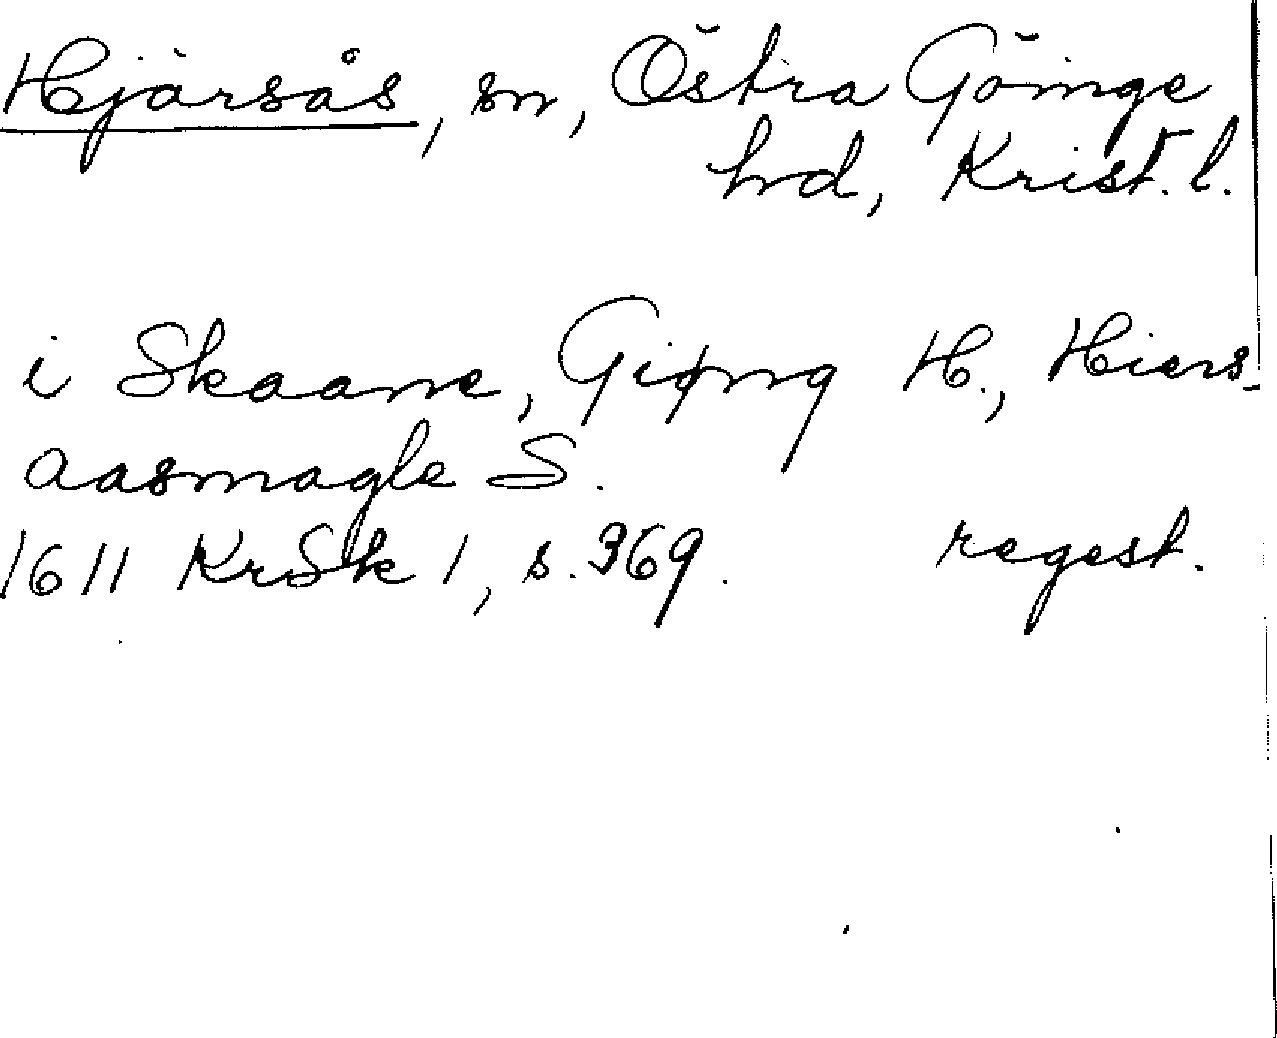 Hjärsås, sn, Östra Göinge
hd, Krist. l.
i Skaane, Giøng H., Hiers-
aasmagle S.
1611 KrSk 1, s. 369. regest.